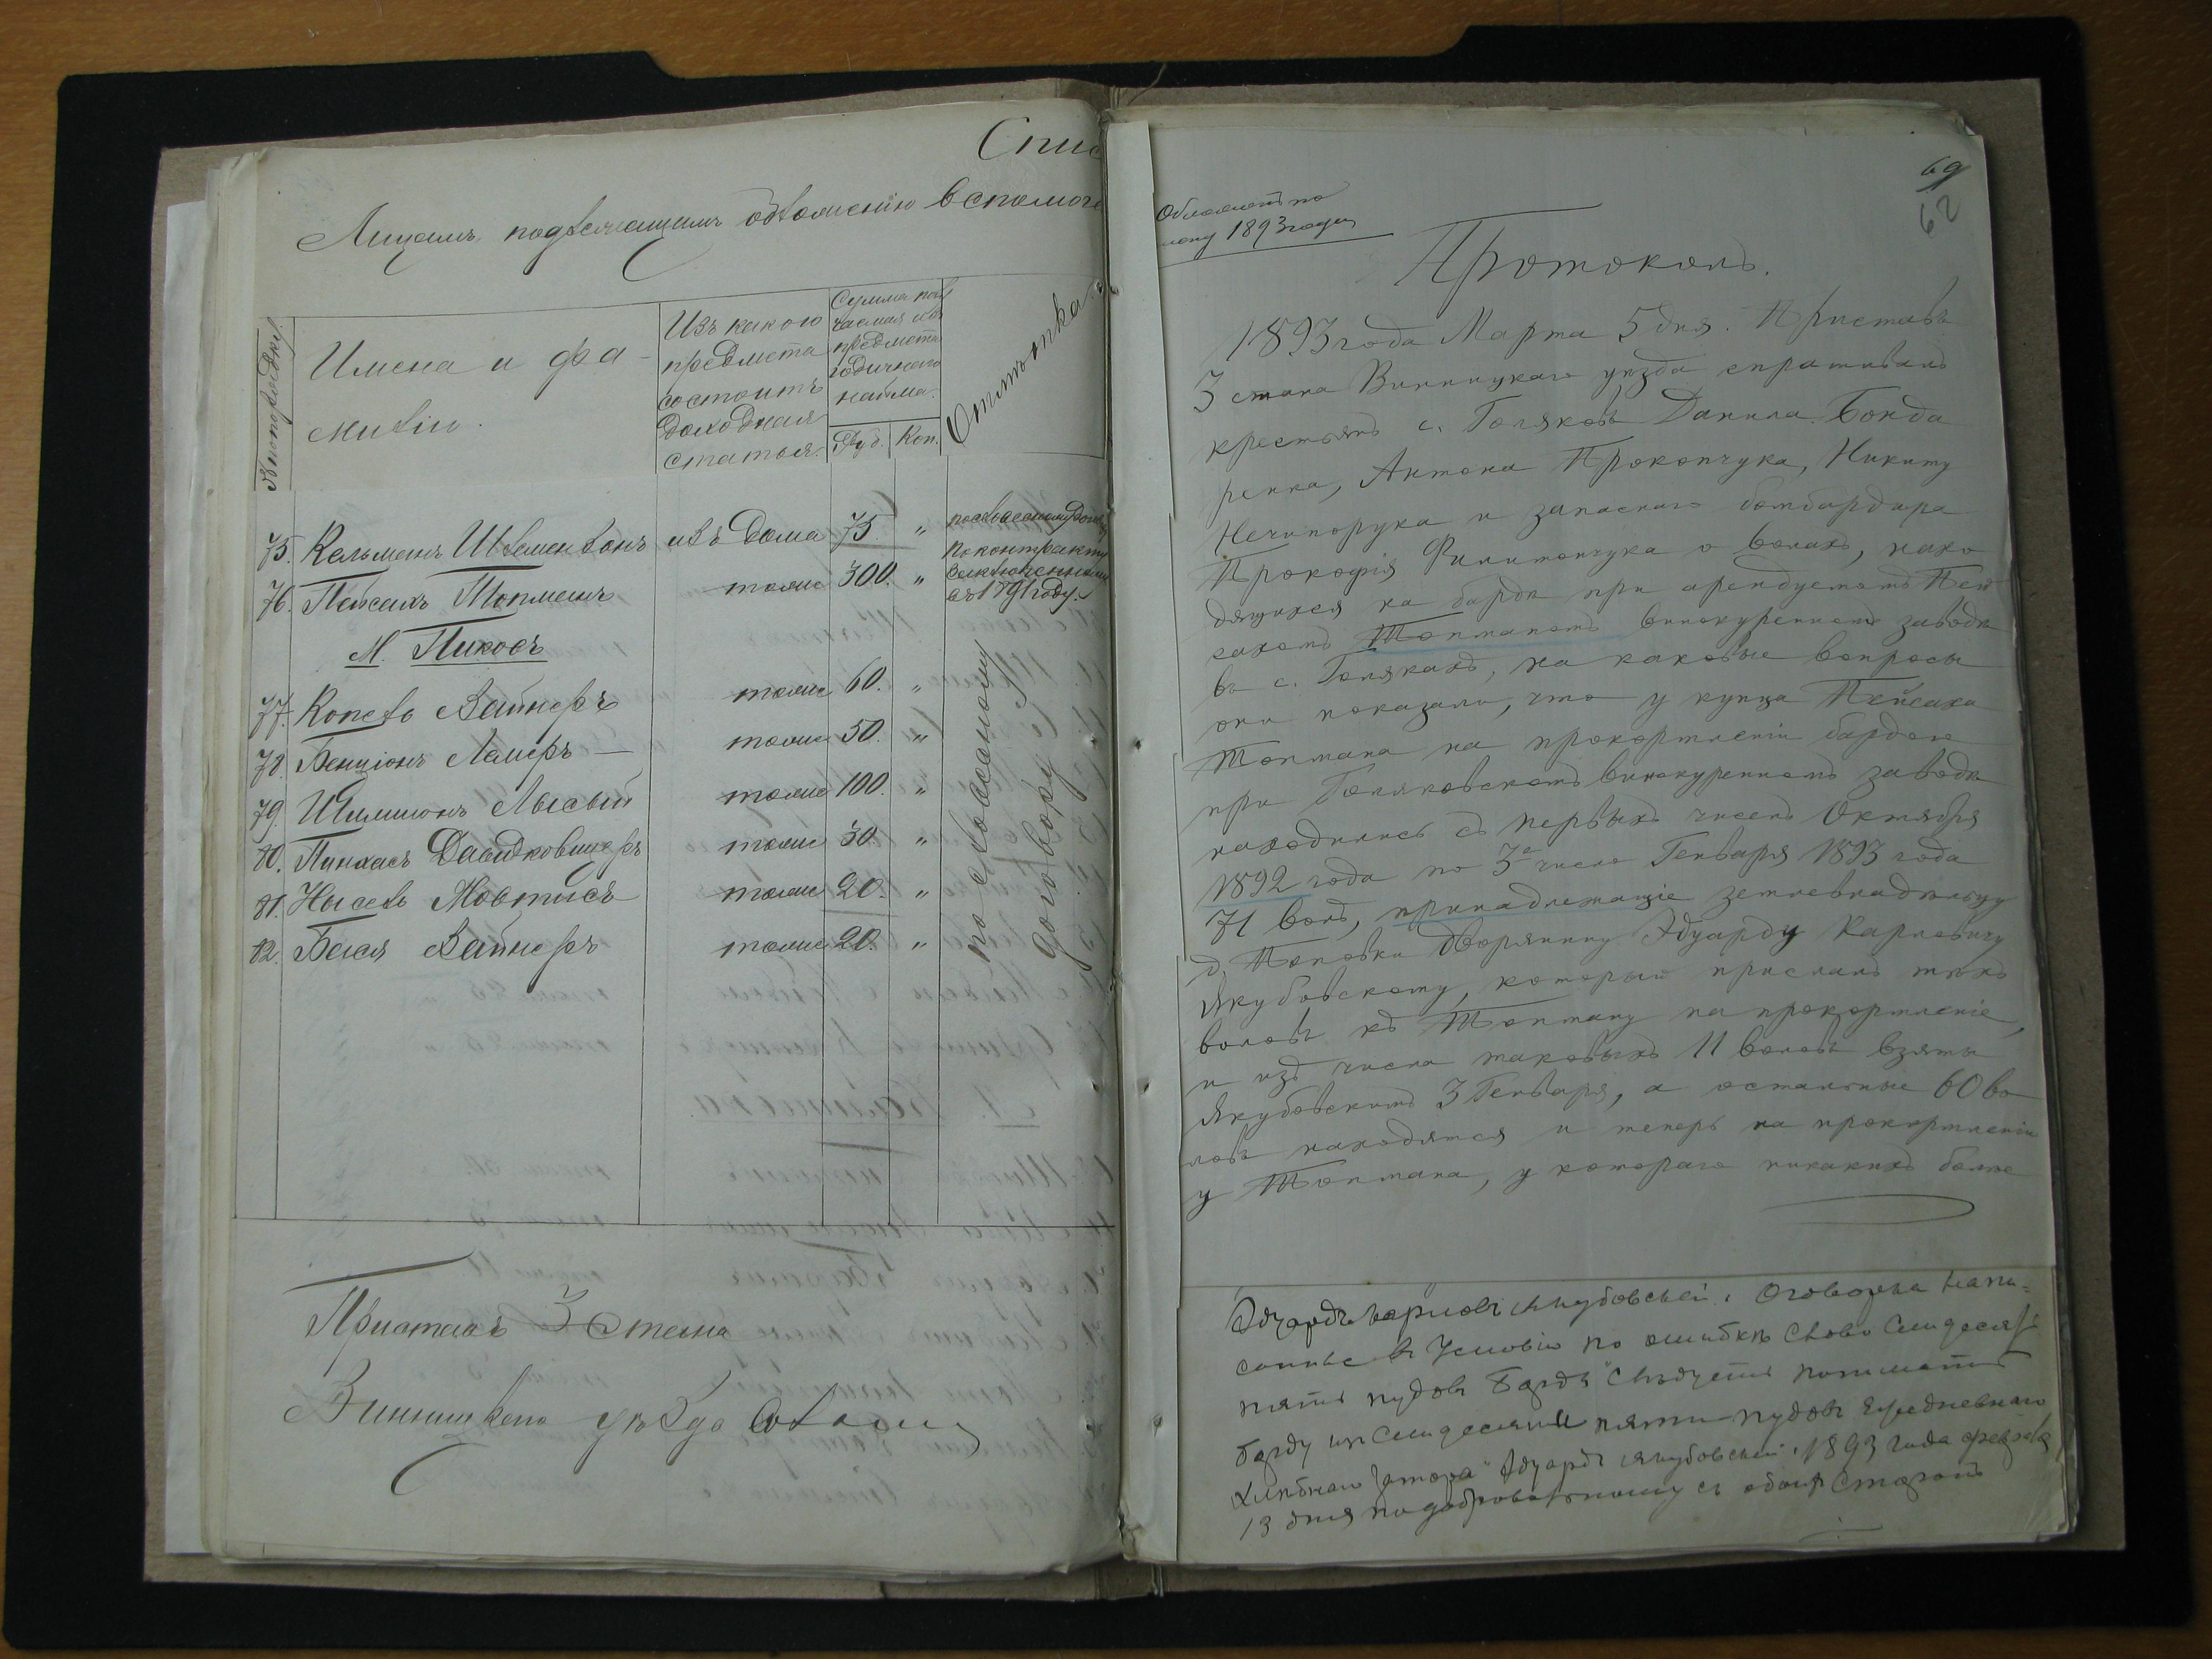 Спис
Лицамъ, подлежащимъ обложенію вспомога
№ по порядку.
Имена и фа-
миліи.
Изъ какого
предмета
состоитъ
доходная
статья.
Сумма полу
чаемая изъ
предмета
годичнаго
найма.
Руб. Коп.
Отмѣтка
75. Кельманъ из дома 75. " по словесному догов
76. Пейсахъ Топманъ тоже 300. " по контракту
заключенному
въ 1891 году.
М. Пиковъ
77. Копель Вайнеръ тоже 60. "
78. Бенціонъ Лемеръ — тоже 50. "
79. Шлимонъ Лысый тоже 100. "
80. Пинхасъ тоже 30. "
81. Нысель тоже 20. "
82. Бейля Вайнеръ тоже 20. "
по словесному
договору
Приставъ 3 стана
Винницкаго уѣзда
69
62
1893 года
Протоколъ.
1893 года Марта 5 дня. Приставъ
3 стана Винницкаго уѣзда спрашивалъ
крестьянъ с. Голяковъ Данила Бонда
ренка, Антона Прокопчука, Никиту
Нечипорука и запаснаго бомбардира
Прокофія Филимончука о волахъ, нахо
дящихся на бардѣ при арендуемомъ Пей
сахомъ Топманомъ винокуренномъ заводѣ
въ с. Голякахъ, на каковые вопросы
они показали, что у купца Пейсаха
Топмана на прокормленіи бардою
при Голяковскомъ винокуренномъ заводѣ
находились съ первыхъ чиселъ Октября
1892 года по 3е число Генваря 1893 года
71 волъ, принадлежащіе землевладѣльцу
д. Поповки дворянину Эдуарду Карловичу
Якубовскому, который прислалъ тѣхъ
воловъ къ Топману на прокормленіе,
и изъ числа таковыхъ 11 воловъ взяты
Якубовскимъ 3 Генваря, а остальные 60 во
ловъ находятся и теперь на прокормленіи
у Топмана, у котораго никакихъ болѣе
Эдуардъ Карловъ Якубовскій. Оговорка напи-
санные въ условіи по ошибкѣ слово семидесяти
пяти пудовъ барды" слѣдуетъ понимать
барду изъ семидесяти пяти пудовъ ежедневнаго
хлѣбнаго затора" Эдуардъ Якубовскій. 1893 года февраля
13 дня съ обоихъ сторонъ